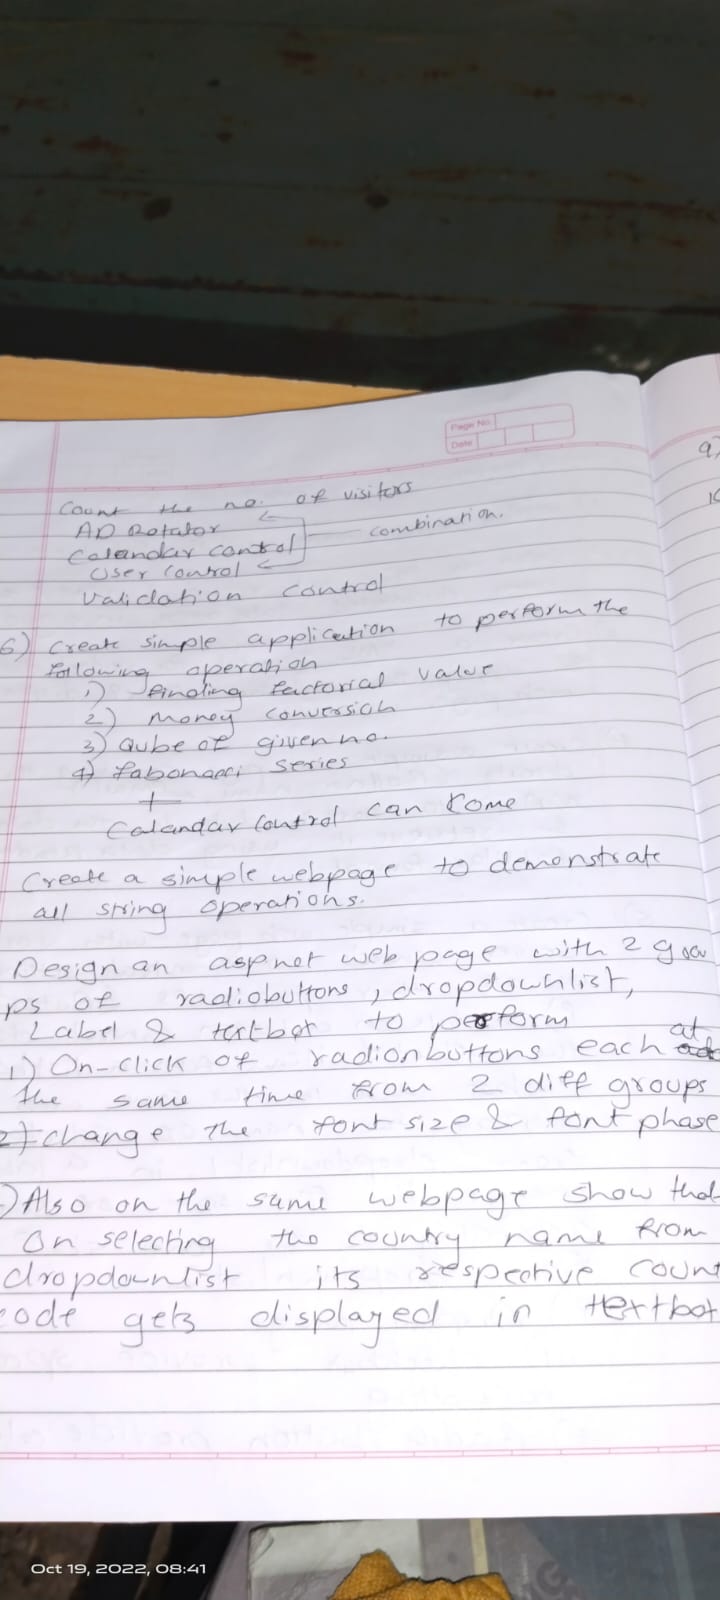 Page No.
Date
Count the no. of visitors
AD Rotator
Calandar control
combination.
User Control
Validation control
6) Create simple application to perform the
following operation
1) finding factorial value
2) money conversion
3) Qube of given no.
4) fabonacci series
+
Calandar control can come
Create a simple webpage to demonstrate
all string operations.
Design an asp net web page with 2 grou
ps of radiobuttons, dropdownlist,
Label & textbox to perform
1) On-click of radionbuttons each at
the same time from 2 diff groups
2) change the font size & font phase
) Also on the same webpage show that
On selecting the country name from
dropdownlist its respective count
code gets displayed in textbox
9)
Oct 19, 2022, 08:41